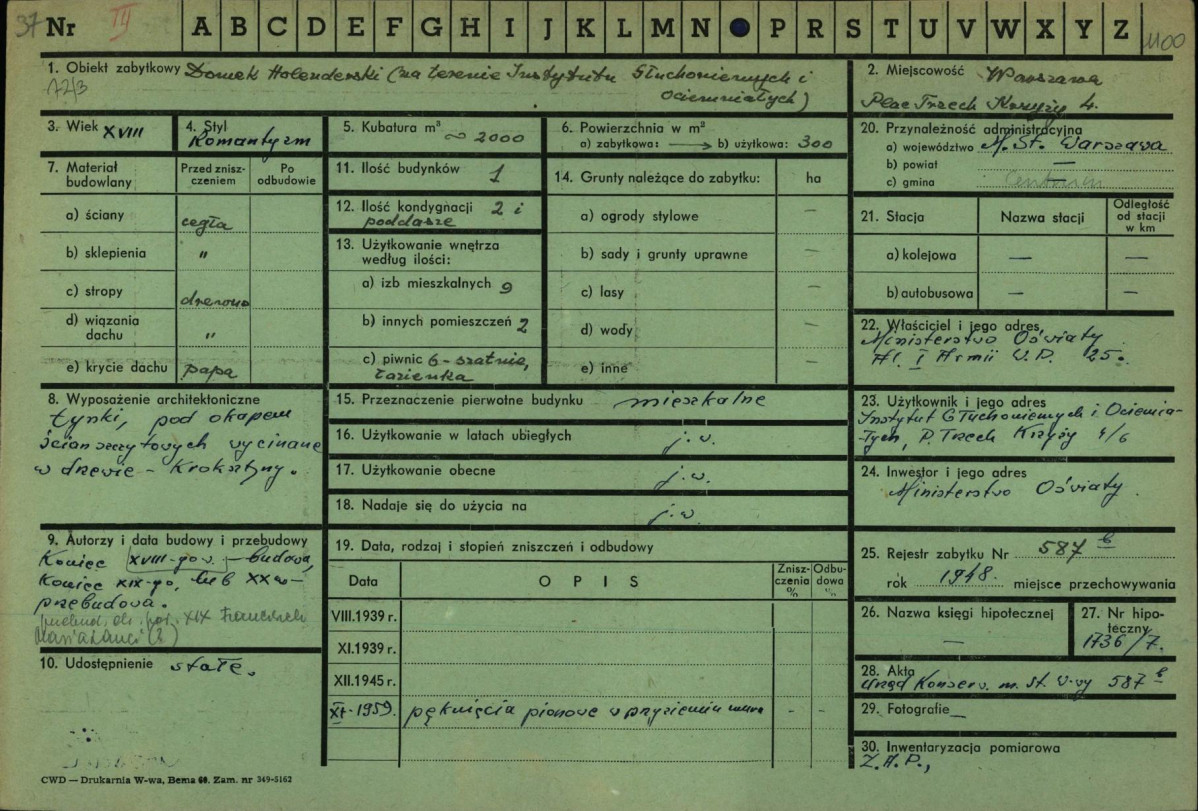 37 Nr III A B C D E F G H I J K L M N P R S T U V W X Y Z 1100
1. Obiekt zabytkowy Domek Holenderski (na terenie Instytutu Głuchoniemych i
72/3 Ociemniałych)
2. Miejscowość Warszawa
Plac Trzech Krzyży 4.
3. Wiek XVIII
4. Styl
Romantyzm
5. Kubatura m³ ~ 2000
6. Powierzchnia w m²
a) zabytkowa: b) użytkowa: 300
20. Przynależność administracyjna
a) województwo M. St. Warszawa
b) powiat —
c) gmina
7. Materiał budowlany
Przed zniszczeniem
Po odbudowie
a) ściany cegła
b) sklepienia "
c) stropy drewno
d) wiązania
dachu "
e) krycie dachu papa
11. Ilość budynków 1
12. Ilość kondygnacji 2 i
poddasze
13. Użytkowanie wnętrza
według ilości:
a) izb mieszkalnych 9
b) innych pomieszczeń 2
c) piwnic 6 - szatnia,
łazienka
14. Grunty należące do zabytku: ha
a) ogrody stylowe —
b) sady i grunty uprawne —
c) lasy —
d) wody —
e) inne —
21. Stacja Nazwa stacji
Odległość
od stacji
w km
a) kolejowa — —
b) autobusowa — —
22. Właściciel i jego adres
Ministerstwo Oświaty
Al. I Armii W.P. 25.
8. Wyposażenie architektoniczne
tynki, pod okapem
ścian szczytowych wycinane
w drewie - Kroksztyny.
15. Przeznaczenie pierwotne budynku mieszkalne
16. Użytkowanie w latach ubiegłych j.w.
17. Użytkowanie obecne j.w.
18. Nadaje się do użycia na j.w.
23. Użytkownik i jego adres
Instytut Głuchoniemych i Ociemnia-
-łych, P. Trzech Krzyży 4/6
24. Inwestor i jego adres
Ministerstwo Oświaty.
9. Autorzy i data budowy i przebudowy
Koniec XVIII-go w. - budowa,
Koniec XIX-go, lub XX w -
przebudowa.
10. Udostępnienie stałe.
19. Data, rodzaj i stopień zniszczeń i odbudowy
Data OPIS
Znisz-
czenia
%
Odbu-
dowa
%
VIII.1939 r.
XI.1939 r.
XII.1945 r.
XI-1959. pęknięcia pionowe w przyziemiu muru - -
25. Rejestr zabytku Nr 587 b
rok 1948. miejsce przechowywania
26. Nazwa księgi hipotecznej
—
27. Nr hipo-
teczny
1736/7.
28. Akta
Urząd Konserw. m. St. W-wy 587 b
29. Fotografie —
30. Inwentaryzacja pomiarowa
Z.A.P.,
CWD — Drukarnia W-wa, Bema 60. Zam. nr 349-5162